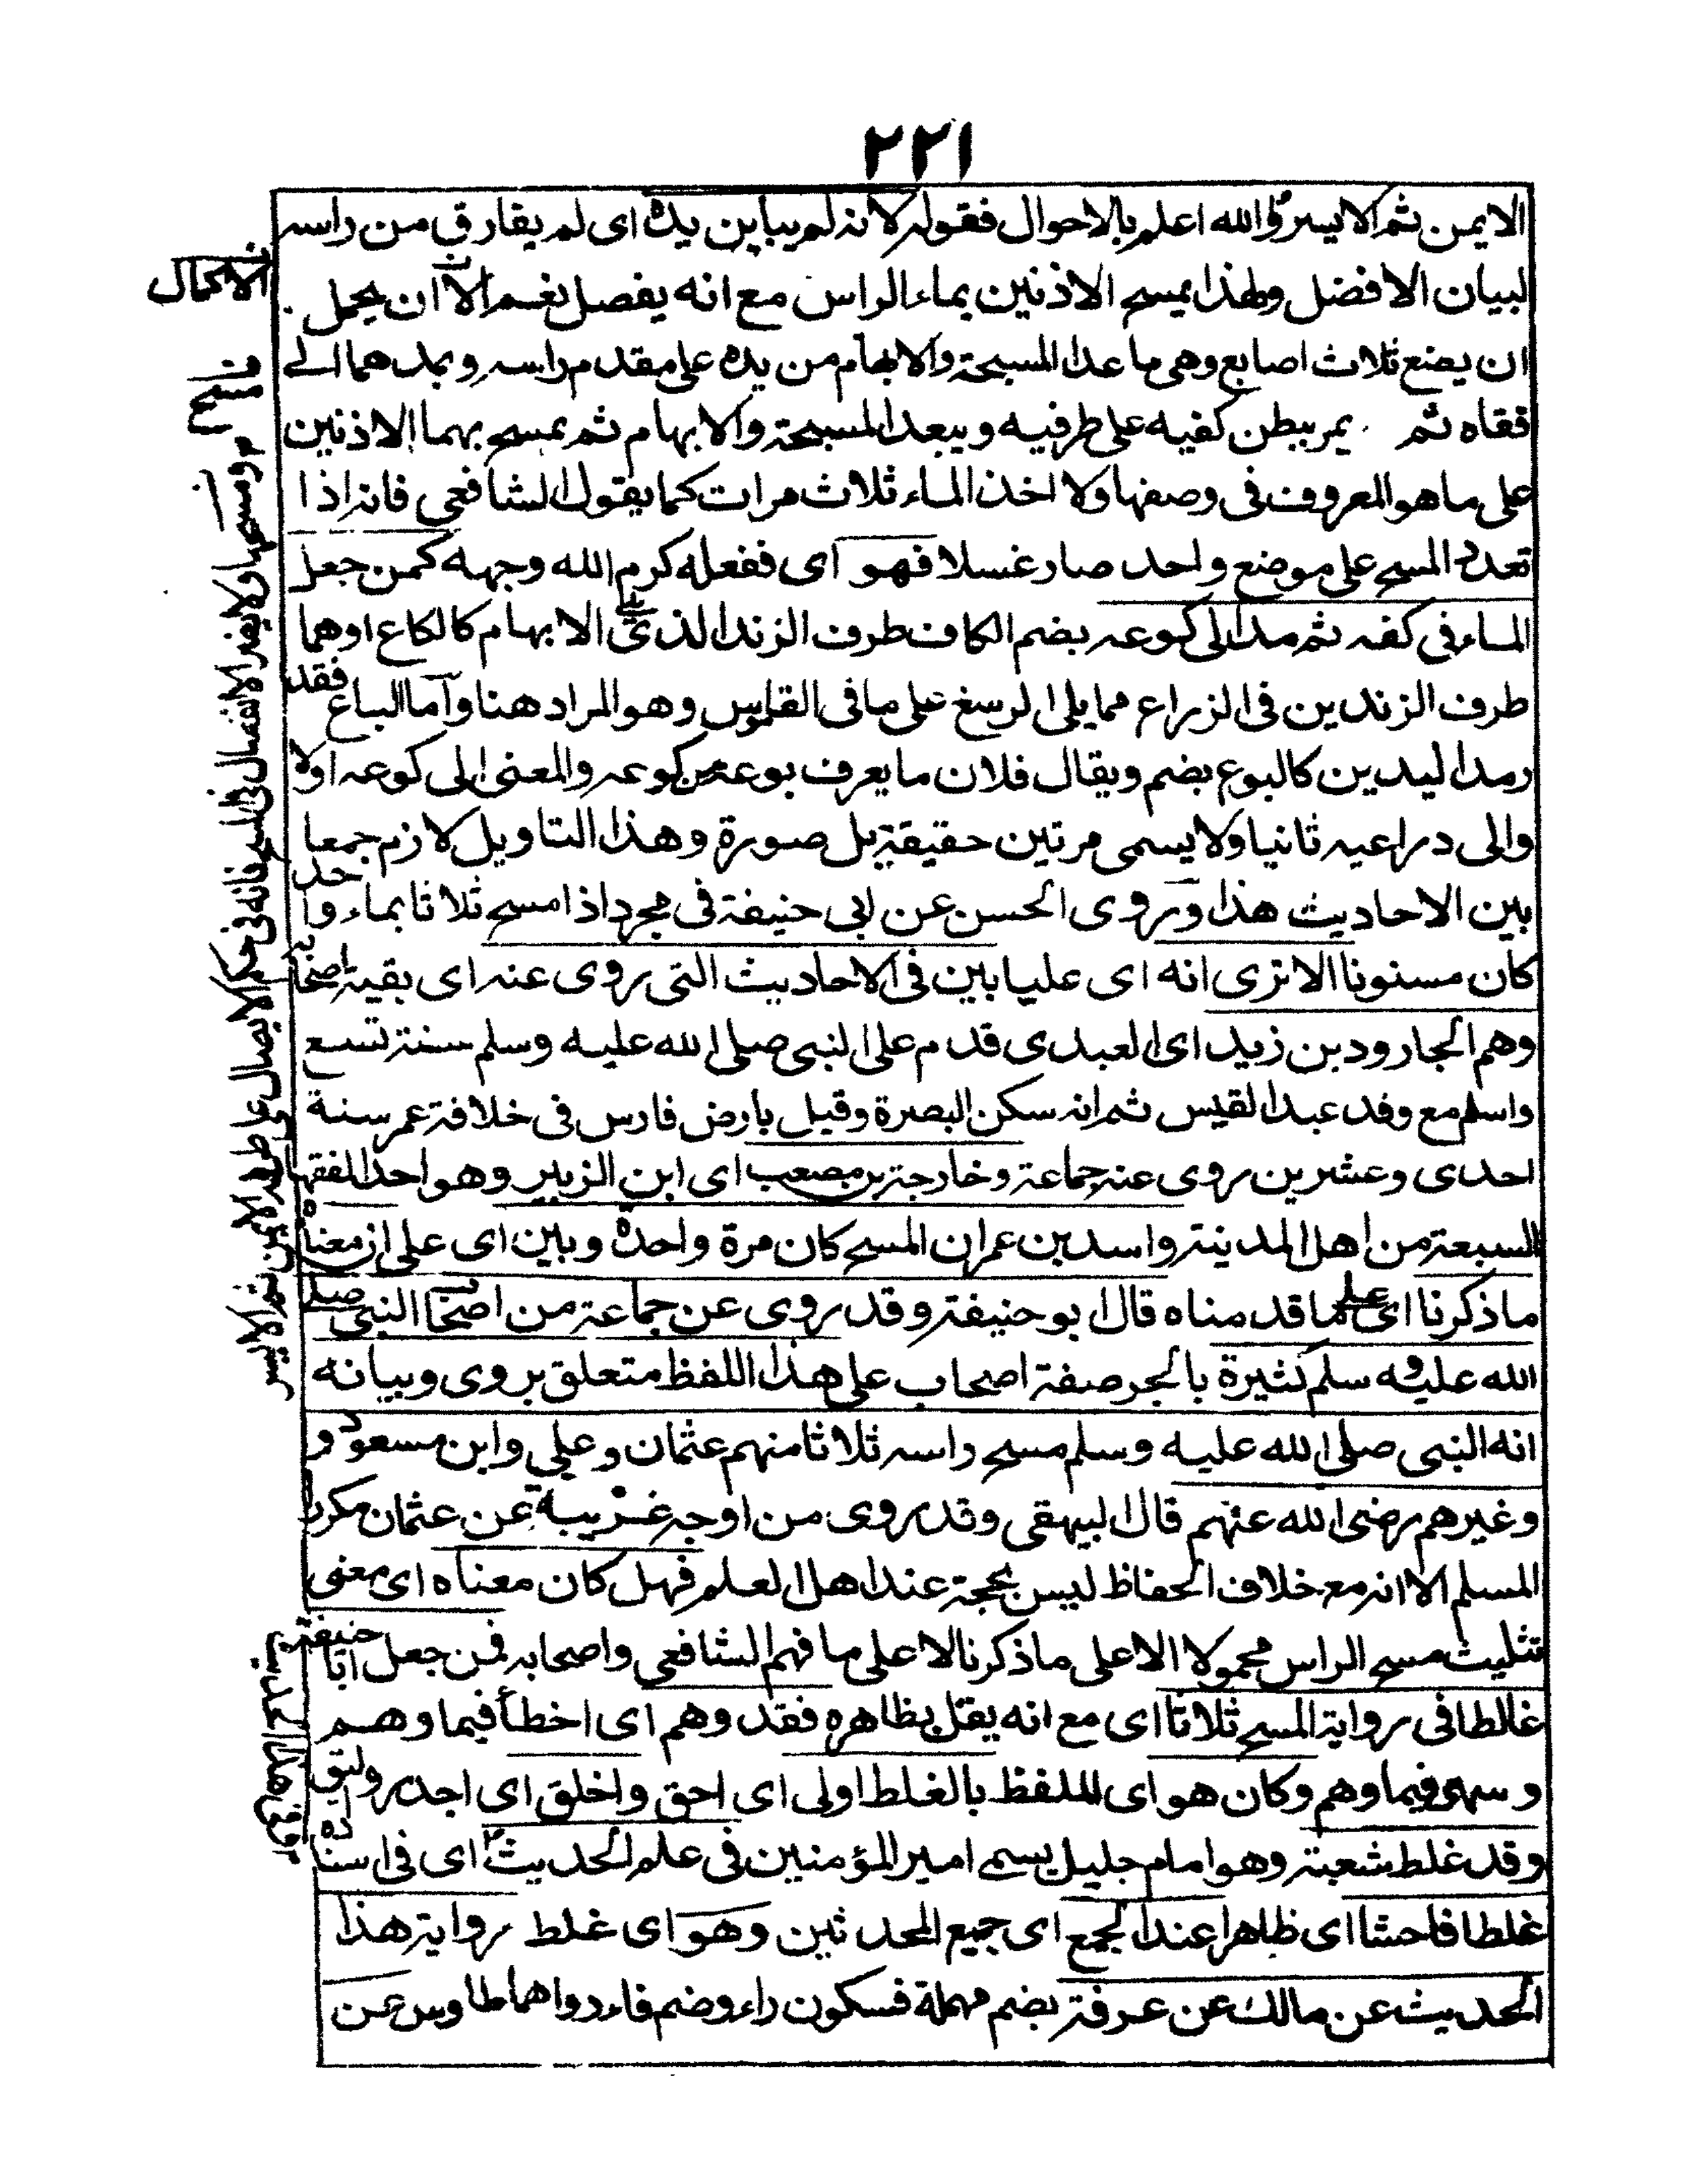 ٢٢١
الايمن ثم الايسر والله اعلم بالاحوال فقوله لانه لم يباين يده اى لم يفارق من راسه
لبيان الافضل ولهذا يمسح الاذنين بماء الراس مع انه يفصل نعم الا ان يحمل
ان يضع ثلاث اصابع وهى ما عدا المسبحة والابهام من يده على مقدم راسه ويمدهما الى
قفاه ثم يمر ببطن كفيه على طرفيه ويبعد المسبحة والابهام ثم يمسح بهما الاذنين
على ما هو المعروف فى وصفها ولا اخذ الماء ثلاث مرات كما يقول الشافعى فانه اذا
تعدد المسح على موضع واحد صار غسلا فهو اى ففعله كرم الله وجهه كمن جعل
الماء فى كفه ثم مدا لى كوعه بضم الكاف طرف الزند الذى يلى الابهام كالكاع او هما
طرف الزندين فى الزراع مما يلى الرسغ على ما فى القاموس وهو المراد هنا واما الباع فقد
رمد اليدين كالبوع بضم ويقال فلان ما يعرف بوعه من كوعه والمعنى الى كوعه اولا
والى دراعيه ثانيا ولا يسمى مرتين حقيقة بل صورة وهذا التاويل لازم جمعا
بين الاحاديث هذا وروى الحسن عن ابى حنيفة فى مجرد اذا مسح ثلاثا بماء واحد
كان مسنونا الا ترى انه اى عليا بين فى الاحاديث التى روى عنه اى بقية اصحابه
وهم الجارود بن زيد اى العبدى قدم على النبى صلى الله عليه وسلم سنة تسع
واسلم مع وفد عبد القيس ثم انه سكن البصرة وقيل بارض فارس فى خلافة عمر سنة
احدى وعشرين روى عنه جماعة وخارجة بن مصعب اى ابن الزبير وهو احد الفقهاء
السبعة من اهل المدينة واسد بن عمر ان المسح كان مرة واحدة وبين اى على ان معناه
ما ذكرنا اى على ما قدمناه قال ابو حنيفة وقد روى عن جماعة من اصحاب النبى صلى
الله عليه وسلم كثيرة بالجر صفة اصحاب على هذا اللفظ متعلق بروى وبيانه
انه النبى صلى الله عليه وسلم مسح راسه ثلاثا منهم عثمان وعلى وابن مسعود و
وغيرهم رضى الله عنهم قال البيهقى وقد روى من اوجه غريبة عن عثمان مكررا
المسلم الا انه مع خلاف الحفاظ ليس بحجة عند اهل العلم فهل كان معناه اى معنى
تثليث مسح الراس محمولا الا على ما ذكرنا لا على ما فهم الشافعى واصحابه فمن جعل ابا حنيفة
غالطا فى رواية المسح ثلاثا اى مع انه يقل بظاهره فقد وهم اى اخطأ فيما وهم
و سهى فيما وهم وكان هو اى الملفظ بالغلط اولى اى احق واخلق اى اجدر وليق
وقد غلط شعبة وهو امام جليل يسمى امير المؤمنين فى علم الحديث اى فى اسناده
غلطا فاحشا اى ظاهرا عند الجمع اى جميع المحدثين وهو اى غلط رواية هذا
الحديث عن مالك عن عرفة بضم مهملة فسكون راء وضم فاء دواهما طاوس عن
الاكمال
مسح
ومسحها ولا يضر الانفصال فى اليد فانه فى حكم الاتصال على طرفه الايمن ثم الايسر